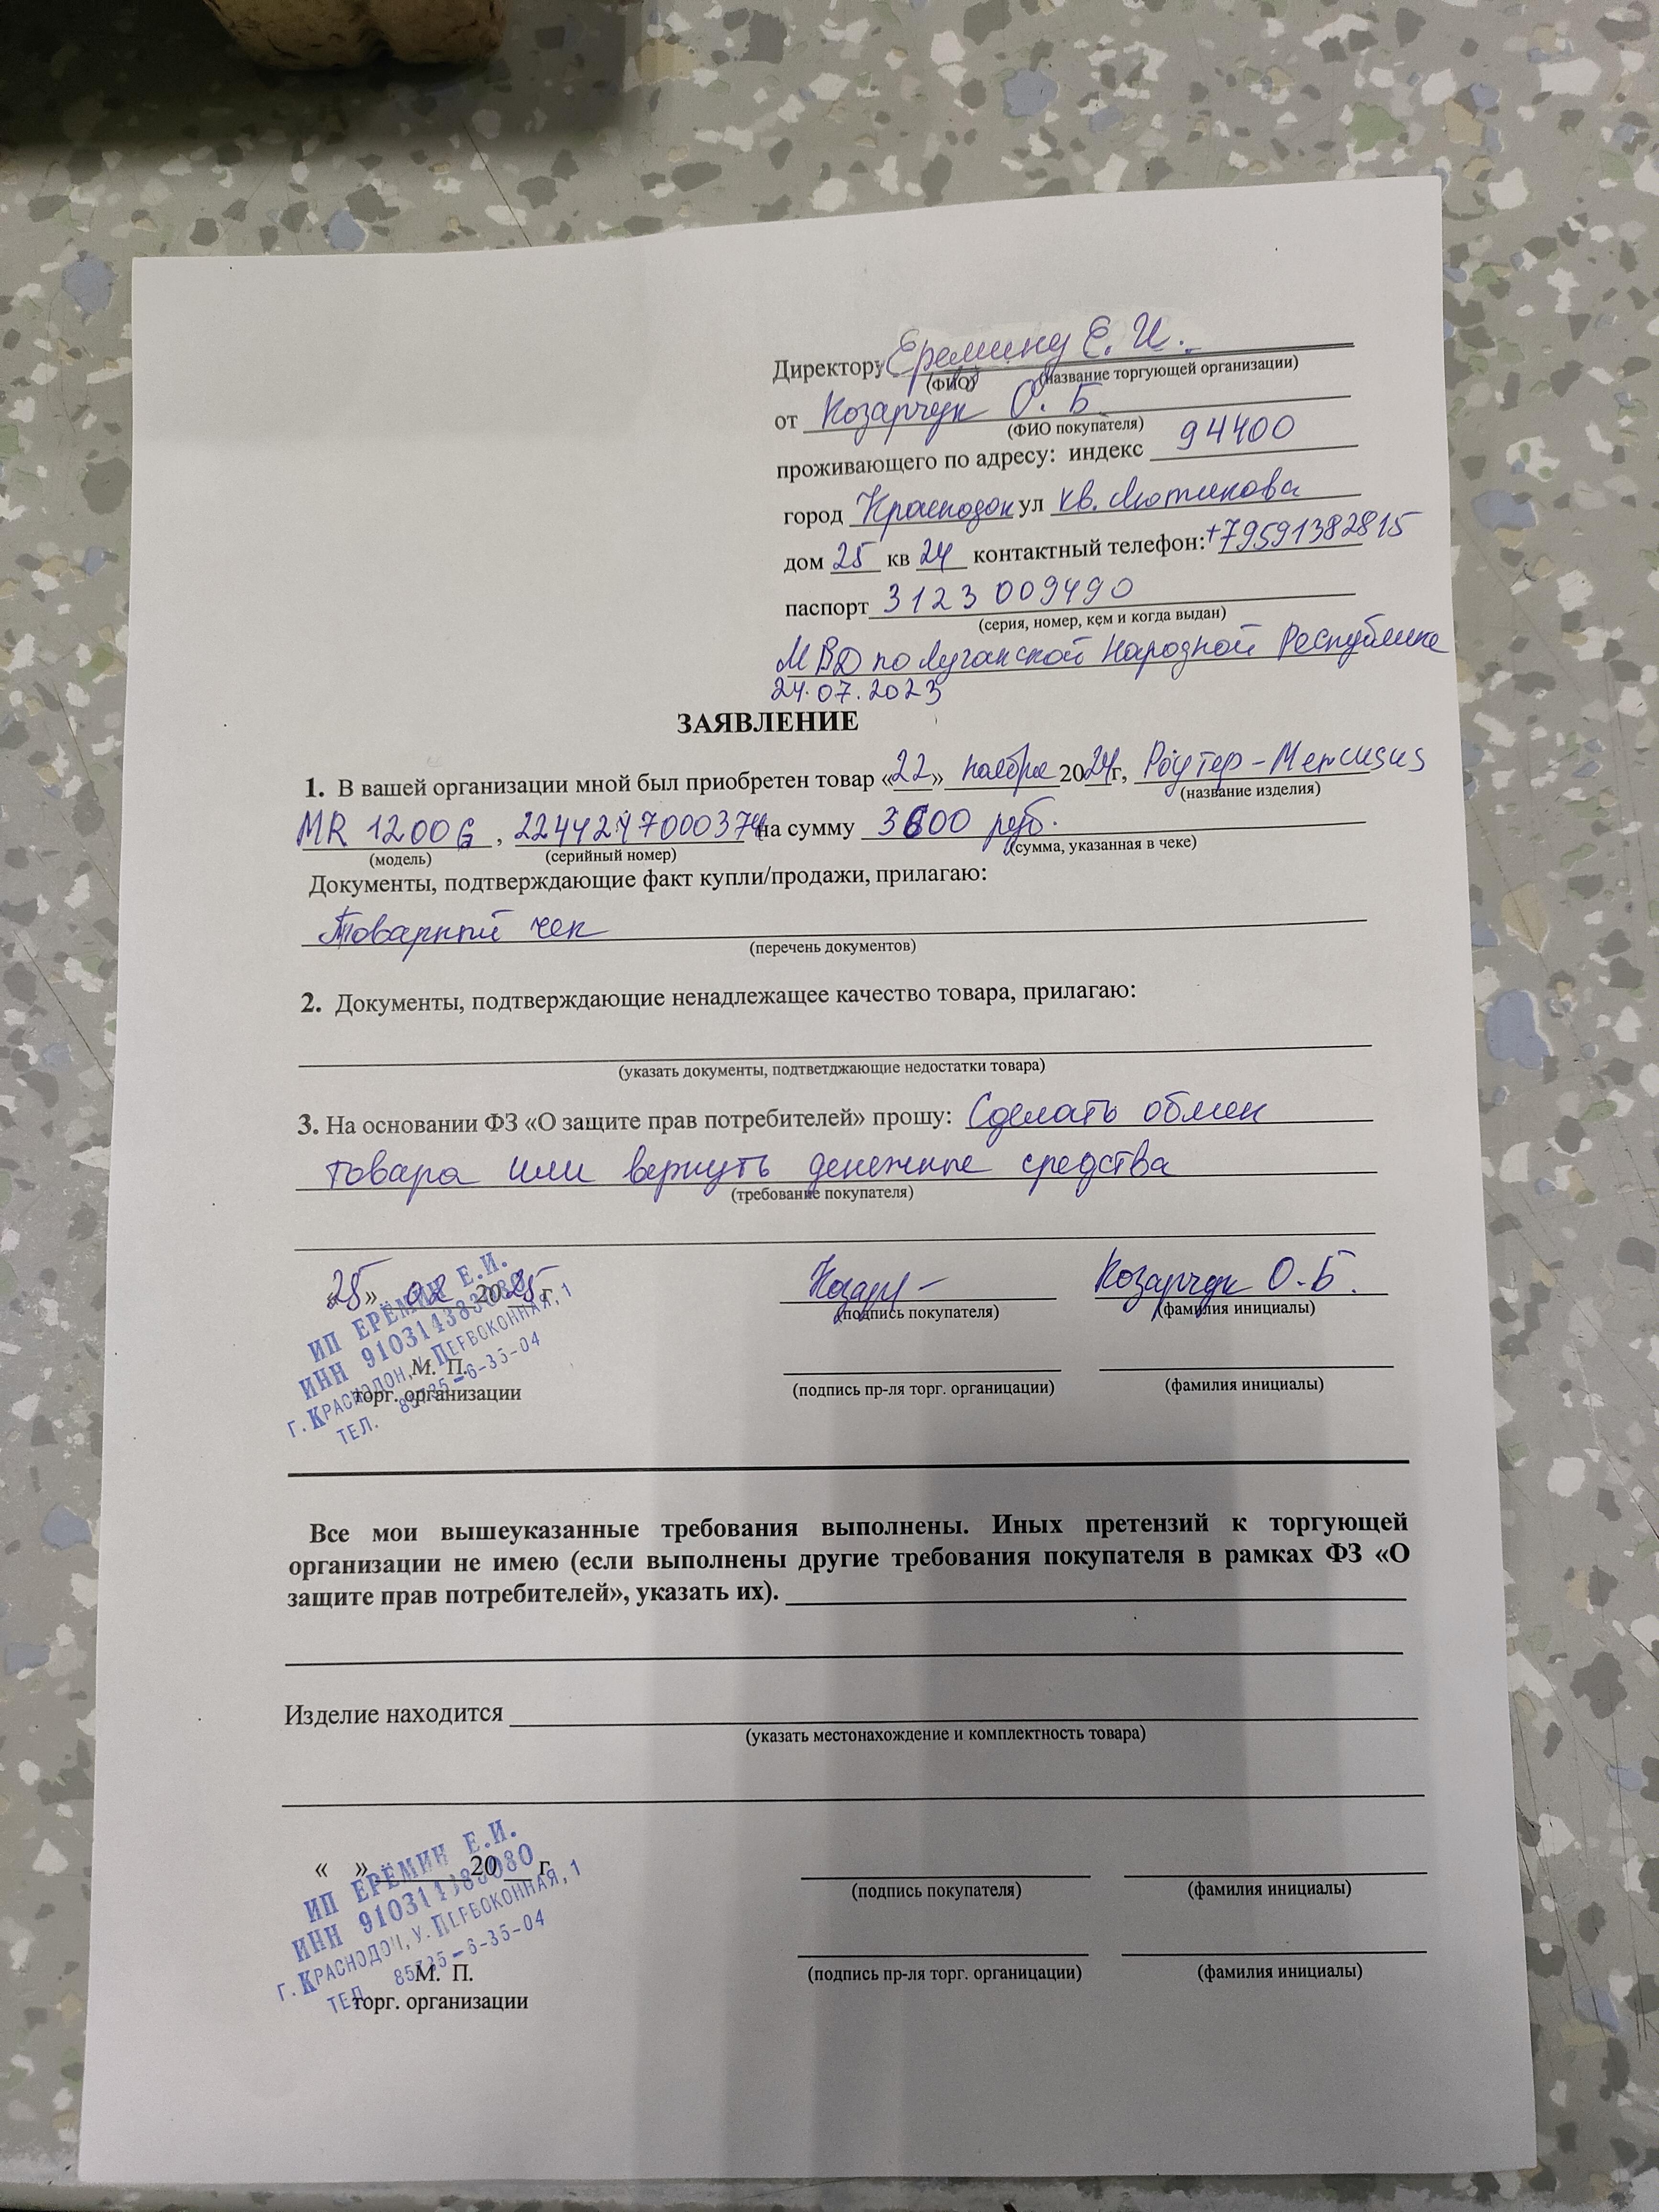 Директору Еремину Е. И.
(ФИО) (название торгующей организации)
от Козарчук О. Б
(ФИО покупателя)
проживающего по адресу: индекс 94400
город Краснодон ул кв. Лютикова
дом 25 кв 24 контактный телефон: +79591382815
паспорт 3123 009490
(серия, номер, кем и когда выдан)
МВД по Луганской Народной Республике
24.07.2023
ЗАЯВЛЕНИЕ
1. В вашей организации мной был приобретен товар «22» ноября 2024г, Роутер - Mercusus
(название изделия)
MR 1200G, 2244247000374 на сумму 3600 руб.
(модель) (серийный номер) (сумма, указанная в чеке)
Документы, подтверждающие факт купли/продажи, прилагаю:
Товарный чек
(перечень документов)
2. Документы, подтверждающие ненадлежащее качество товара, прилагаю:
(указать документы, подтветджающие недостатки товара)
3. На основании ФЗ «О защите прав потребителей» прошу: Сделать обмен
товара или вернуть денежные средства
(требование покупателя)
«25» 02 2025 г. Козарчук О.Б.
(подпись покупателя) (фамилия инициалы)
ИП ЕРЁМИН Е.И.
ИНН 910314383080
г. КРАСНОДОН, У. ПЕРВОКОННАЯ, 1
ТЕЛ. 85735-6-35-04
М. П.
торг. организации
(подпись пр-ля торг. органицации) (фамилия инициалы)
Все мои вышеуказанные требования выполнены. Иных претензий к торгующей
организации не имею (если выполнены другие требования покупателя в рамках ФЗ «О
защите прав потребителей», указать их).
Изделие находится
(указать местонахождение и комплектность товара)
« » 20 г.
(подпись покупателя) (фамилия инициалы)
ИП ЕРЁМИН Е.И.
ИНН 910314383080
г. КРАСНОДОН, У. ПЕРВОКОННАЯ, 1
ТЕЛ. 85735-6-35-04
М. П.
торг. организации
(подпись пр-ля торг. органицации) (фамилия инициалы)